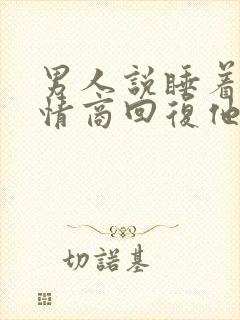 男人說睡着
情商回復他
切諾基